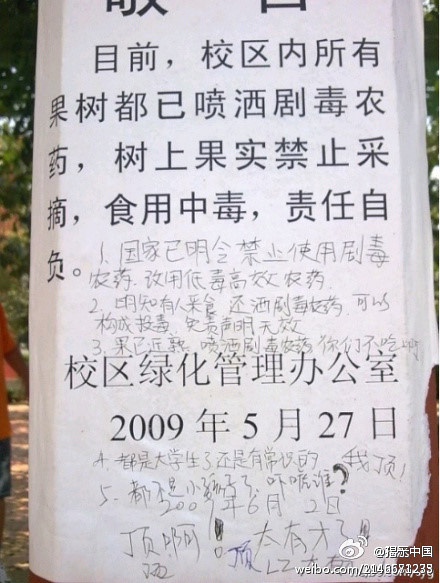 敬告
目前，校区内所有
果树都已喷洒剧毒农
药，树上果实禁止采
摘，食用中毒，责任自
负。
1. 国家已明令禁止使用剧毒
农药. 改用低毒高效农药.
2. 明知有人采食, 还洒剧毒农药. 可以
构成投毒. 免责声明无效
3. 果已近熟. 喷洒剧毒农药你们不吃啊
校区绿化管理办公室
2009 年 5 月 27 日
4. 都是大学生了还是有常识的. 我顶!
5. 都不是小孩子了 吓唬谁?
2009年6月2日
顶啊! 太有才了!
顶 LZ
@揭示中国
weibo.com/2146681235